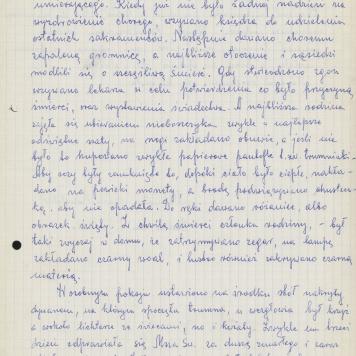 umierającego. Kiedy już nie było żadnej nadziei na
wyzdrowienie chorego, wzywano księdza do udzielenia
ostatnich sakramentów. Następnie dawano choremu
zapaloną gromnicę, a najbliższe otoczenie i sąsiedzi
modlili się o szczęśliwą śmierć. Gdy stwierdzono zgon
wzywano lekarza w celu potwierdzenia co było przyczyną
śmierci, oraz wystawienia świadectwa. A najbliższa rodzina
zajęła się ubieraniem nieboszczyka zwykle w najlepsze
odświętne szaty, na nogi zakładano obuwie, a jeśli nie
było to kupowano zwykle papierowe pantofle t.zw. trumniaki.
Aby oczy były zamknięte to, dopóki ciało było ciepłe, nakła-
dano na powieki monety, a brodę podwiązywano chustecz-
ką, aby nie opadała. Do ręki dawano różaniec, albo
obrazek święty. Z chwilą śmierci członka rodziny, - był
taki zwyczaj w domu, że zatrzymywano zegar, na lampę
zakładano czarny woal, i lustro również zakrywano czarną
materią.
W osobnym pokoju ustawiono na środku stół nakryty
dywanem, na którym spoczęła trumna, u wezgłowia był krzyż
a wokoło lichtarze ze świecami, no i kwiaty. Zwykle na trzeci
dzień odprawiała się Msza Św. za duszę zmarłego i zaraz